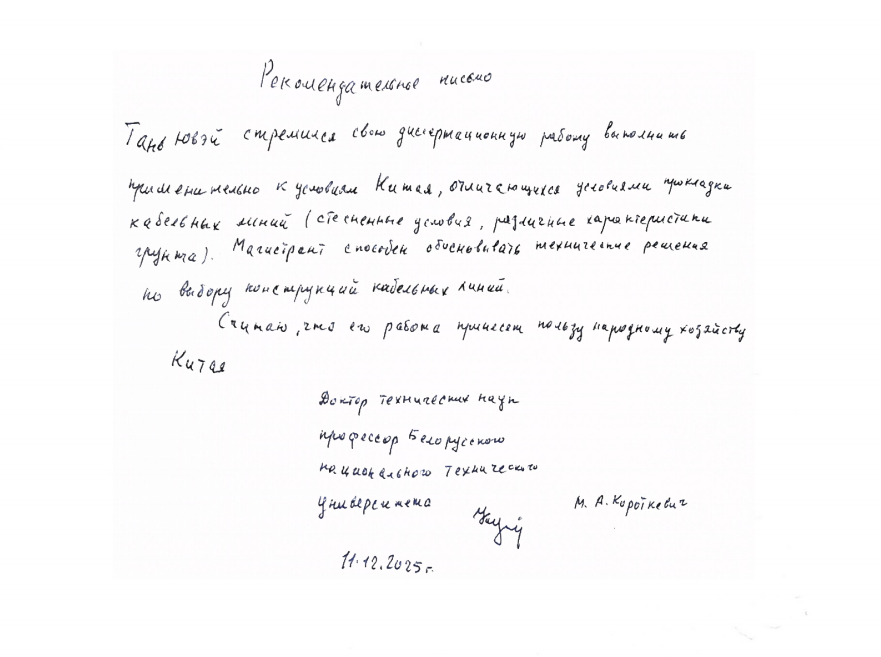 Рекомендательное письмо
Тань Ювэй стремился свою диссертационную работу выполнить
применительно к условиям Китая, отличающихся условиями прокладки
кабельных линий (стесненные условия, различные характеристики
грунта). Магистрант способен обосновывать технические решения
по выбору конструкций кабельных линий.
Считаю, что его работа принесет пользу народному хозяйству
Китая
Доктор технических наук
профессор Белорусского
национального технического
университета
М. А. Короткевич
11.12.2025 г.